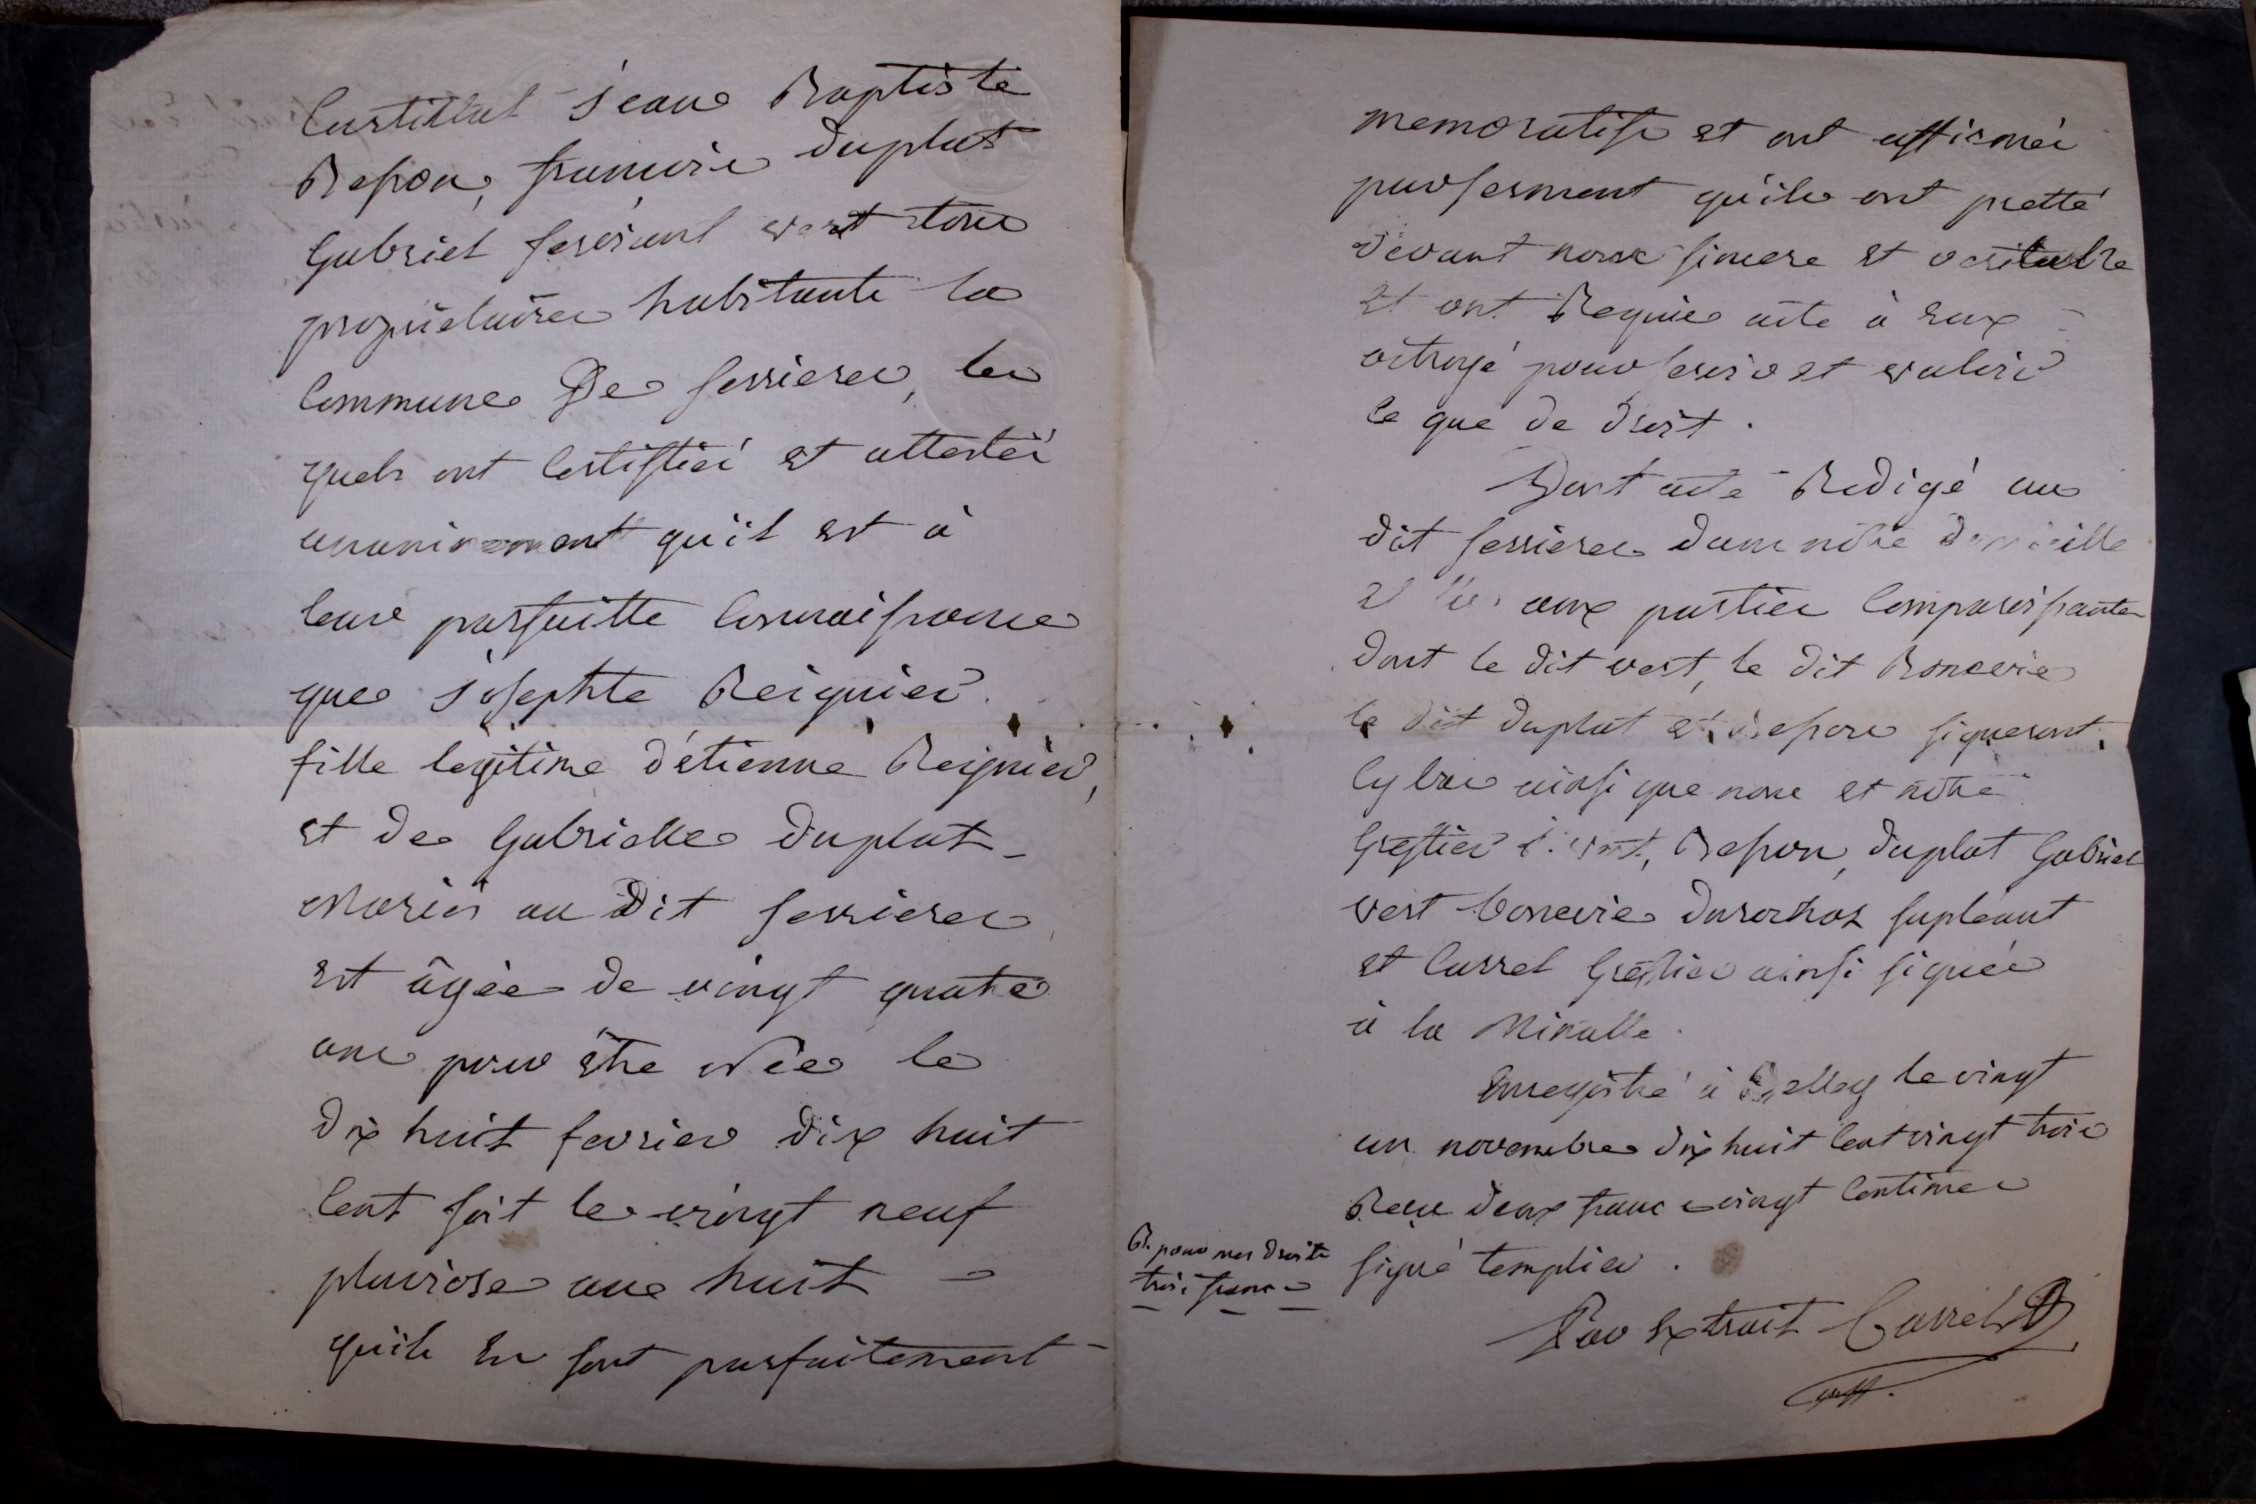 Jean Baptiste
Besson, francois duplat
Gabriel servant vert tous
proprietaires habitants la
Commune De serrieres, les
quels ont Certiffiés et attestés
unanimement qu'il est à
leur parfaitte Connaissance
que Josephte Reignier
fille legitime d'étienne Reignier,
et de Gabrielle duplat
Mariés au Dit serrieres
est âgée de vingt quatre
ans pour être Née le
dix huit fevrier dix huit
Cent soit le vingt neuf
pluviose ans huit
qu'ils En sont parfaitement
memoratifs et ont affirmés
par serment qu'ils ont pretté
devant nous sincere et veritable
Et ont Requis acte à Eux
octroyé pour servir et valoir
Ce que de droit.
Dont acte Redigé au
dit serrieres dans nôtre domicille
et aux parties Comparaissantes
dont le dit vert, le dit Bonevie
le dit duplat et Besson signeront
Cy bas ainsi que nous et nôtre
Greffier, Besson, duplat Gabriel
vert bonevie supleant
et Carrel Greffier ainsi signés
à la Minutte.
Enregistré à Belley le vingt
un novembre dix huit Cent vingt trois
Recu deux francs vingt Centimes
signé templier.
R. pour nos droits
trois francs
Par Extrait Carrel
greff.